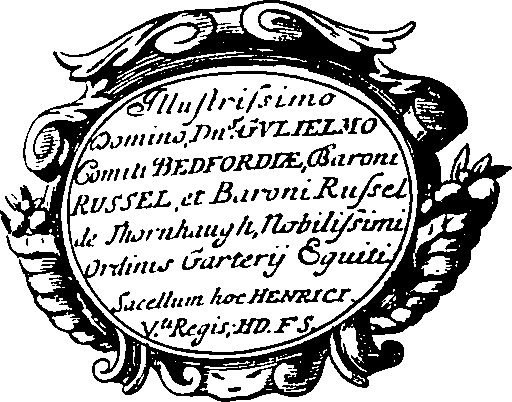 Illuſtriſsimo
Domino, Dn°. GVLIELMO
Comiti BEDFORDIÆ, Baroni
RUSSEL, et Baroni Ruſsel
de Thornhaugh, Nobiliſsimi
Ordinis Garterij Equiti
Sacellum hoc HENRICI.
V.ti Regis, HD. FS.